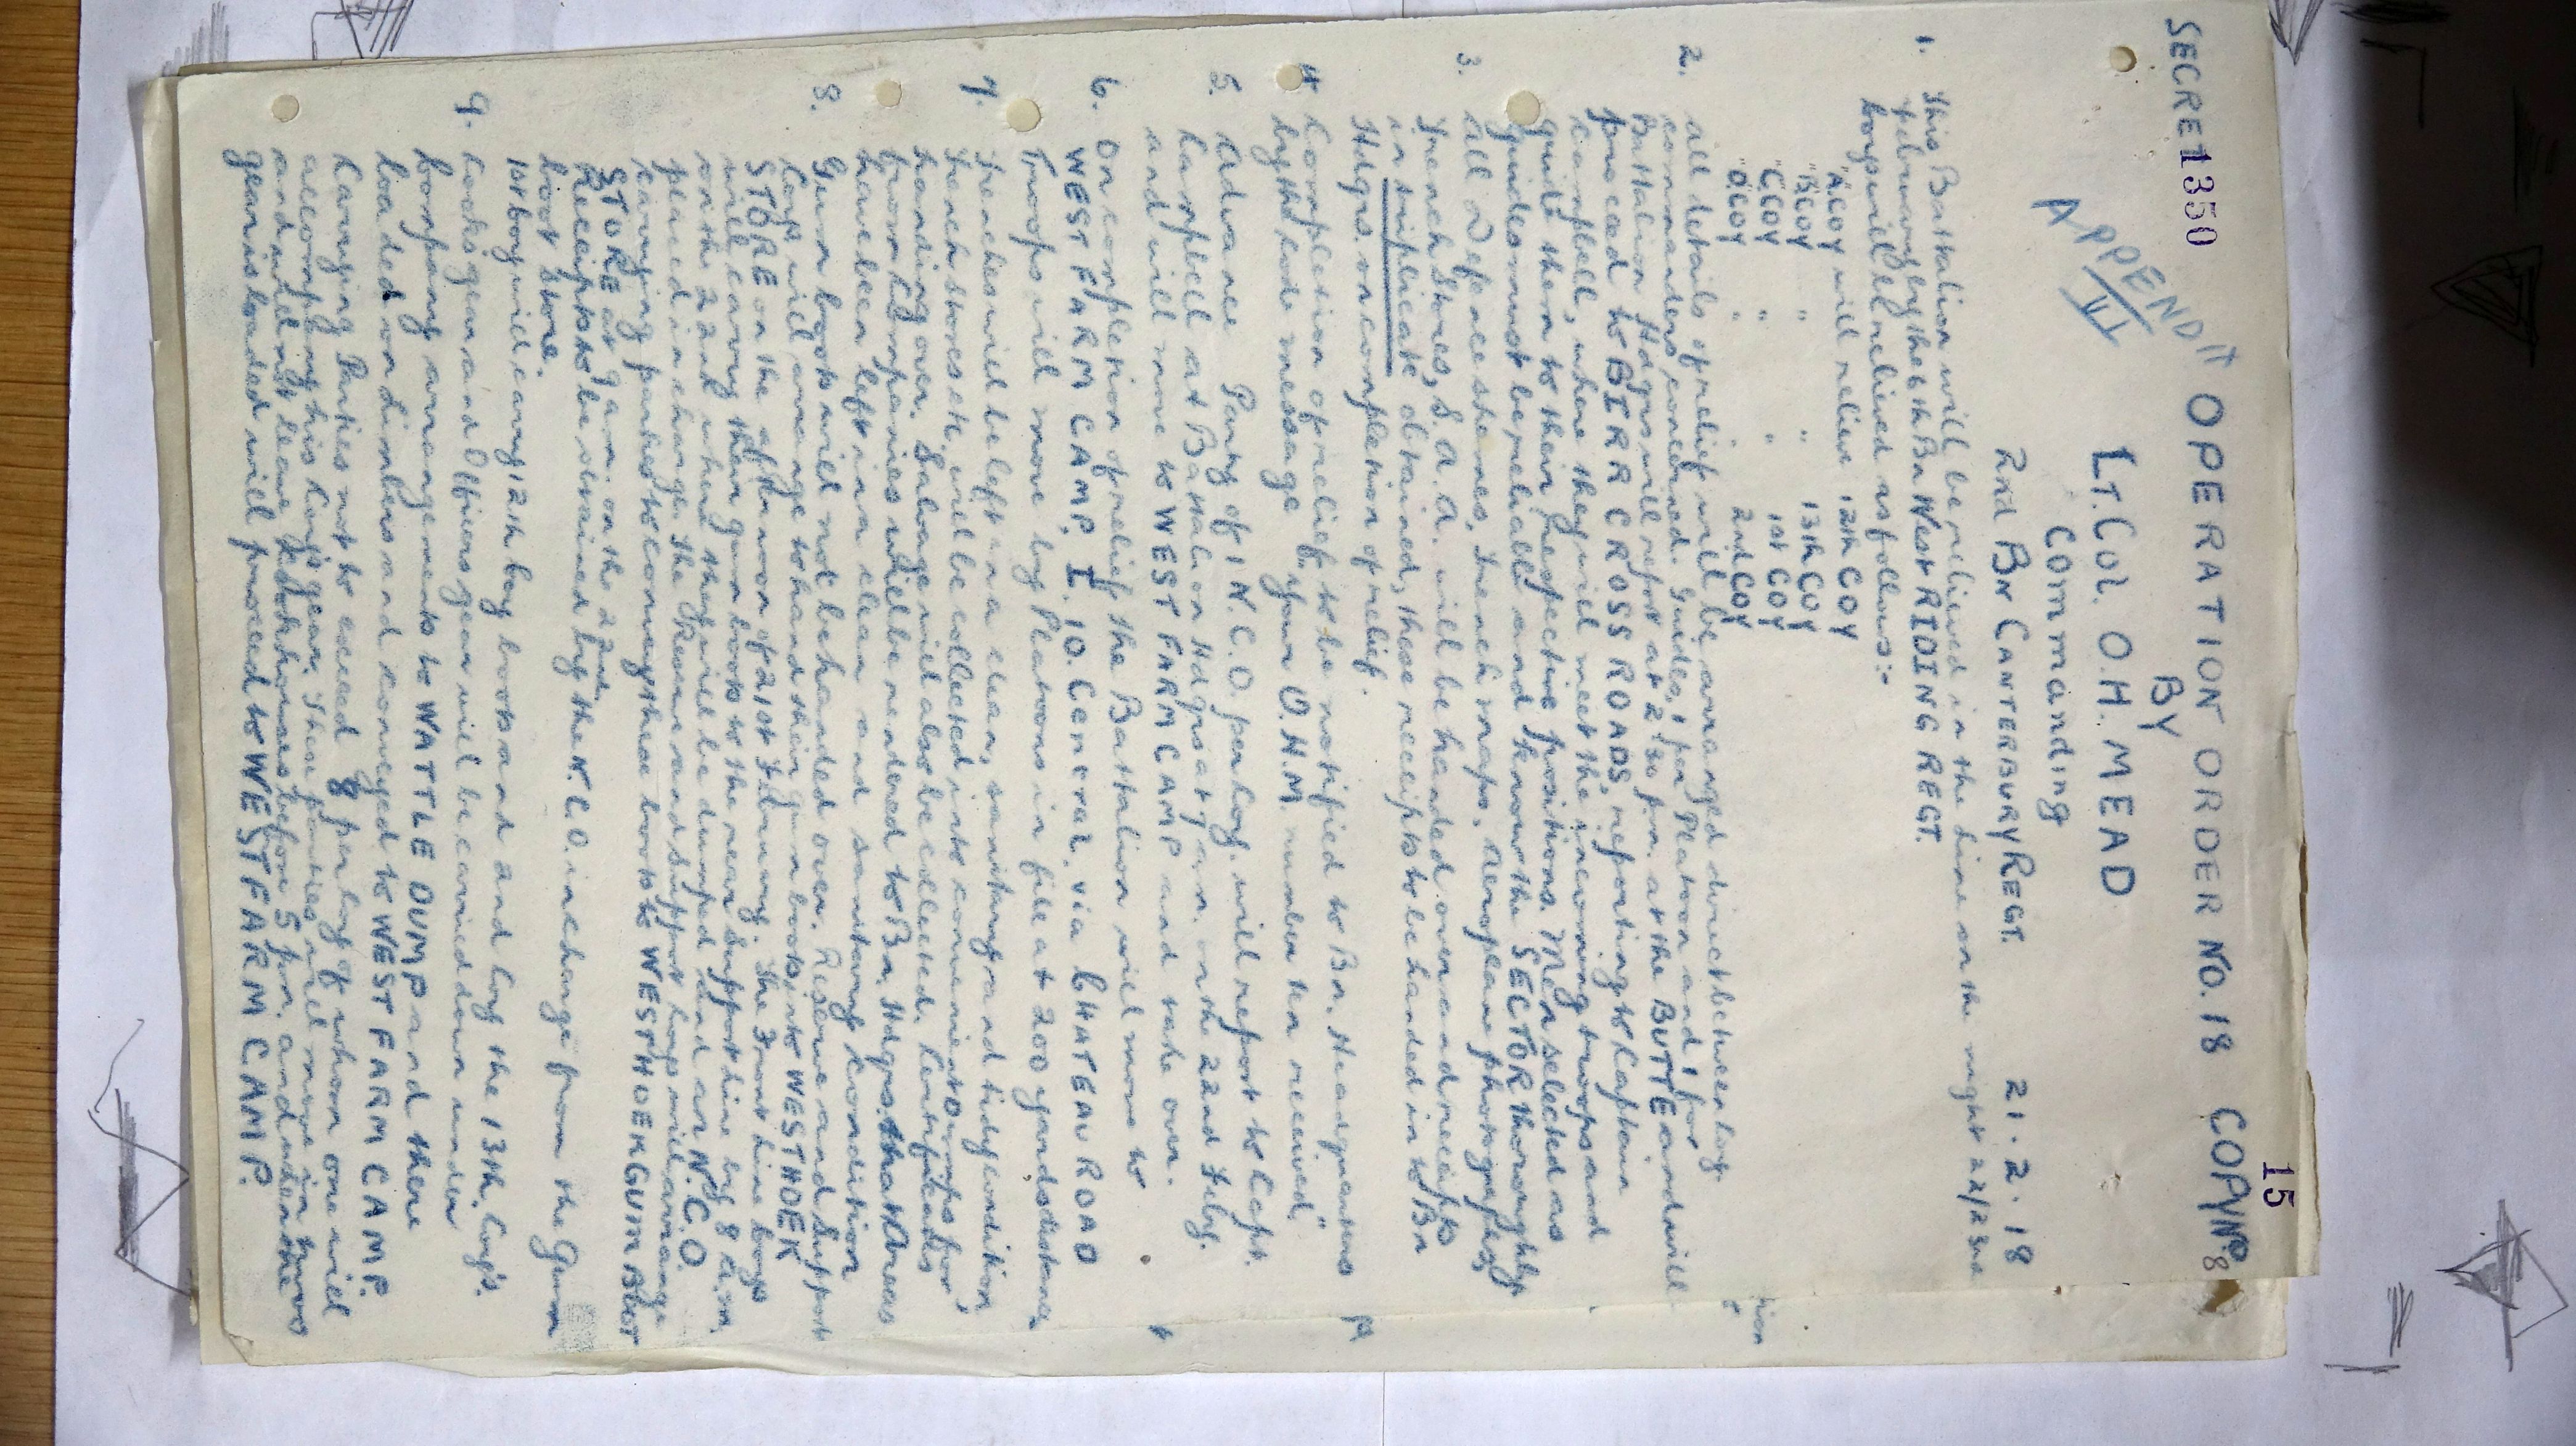 15
SECRET 1350 OPERATION ORDER NO. 18 COPY NO. 8
BY
APPENDIX VI
LT. COL. O.H. MEAD
Commanding
2nd BN CANTERBURY REGT. 21.2.18
1. This Battalion will be relieved in the line on the night 22/23rd
February by the 6th Bn West RIDING REGT.
Coys will be relieved as follows:-
"A" COY will relieve 12th COY
"B" COY " " 13th COY
"C" COY " " 1st COY
"D" COY " " 2nd COY
2. All details of relief will be arranged direct between Coy.
commanders concerned. Guides, 1 per Platoon and 1 for
Battalion Hdqrs will report at 2.30 p.m. at the BUTTE and will
proceed to BIRR CROSS ROADS, reporting to Captain
Campbell, where they will meet the incoming troops and
guide them to their respective positions. Men selected as
guides must be reliable and know the SECTOR thoroughly
3. All Defence schemes, trench maps, aeroplane photographs,
Trench Stores, S.A.A. will be handed over and receipts
in triplicate obtained, these receipts to be handed in to Bn
Hdqrs. on completion of relief.
4 Completion of relief to be notified to Bn. Headquarters
by the code message "your O.H.M. number ten received"
5. Advance Party of 1 N.C.O. per Coy. will report to Capt.
Campbell at Battalion Hdqrs at 7 a.m. on the 22nd Feby.
and will move to WEST FARM CAMP and take over.
6. On completion of relief the Battalion will move to
WEST FARM CAMP I.10. Central via CHATEAU ROAD
Troops will move by Platoons in file at 200 yards distance,
7. Trenches will be left in a clean, sanitary and tidy condition
Trench stores etc will be collected into convenient Dumps for
handing over. Salvage will also be collected. Certificates
from Companies will be rendered to Bn. Hdqrs. that Areas
have been left in a clean and sanitary condition
8. Gum boots will not be handed over. Reserve and Support
Coys will arrange to hand their gum boots into WESTHOEK
STORE on the afternoon of 21st February. The Front line Coys
will carry their gum boots to the near support line by 8 a.m.
on the 22nd where they will be dumped and an N.C.O.
placed in charge. The Reserve and support Coys will arrange
carrying parties to convey these boots to WESTHOEK GUM BOOT
STORE at 9 a.m. on the 22nd.
Receipts to be obtained by the N.C.O. in charge from the Gum
boot Store.
1st Coy will carry 12th Coy boots and Coy the 13th. Coy's.
9. Cooks gear and Officers gear will be carried down under
Company arrangements to WATTLE DUMP and there
loaded on limbers and conveyed to WEST FARM CAMP.
Carrying Parties not to exceed 8 per Coy of whom one will
accompany his Coys gear. These parties will move in twos
and will not leave before 5 p.m. and when the
gear is loaded will proceed to WEST FARM CAMP.